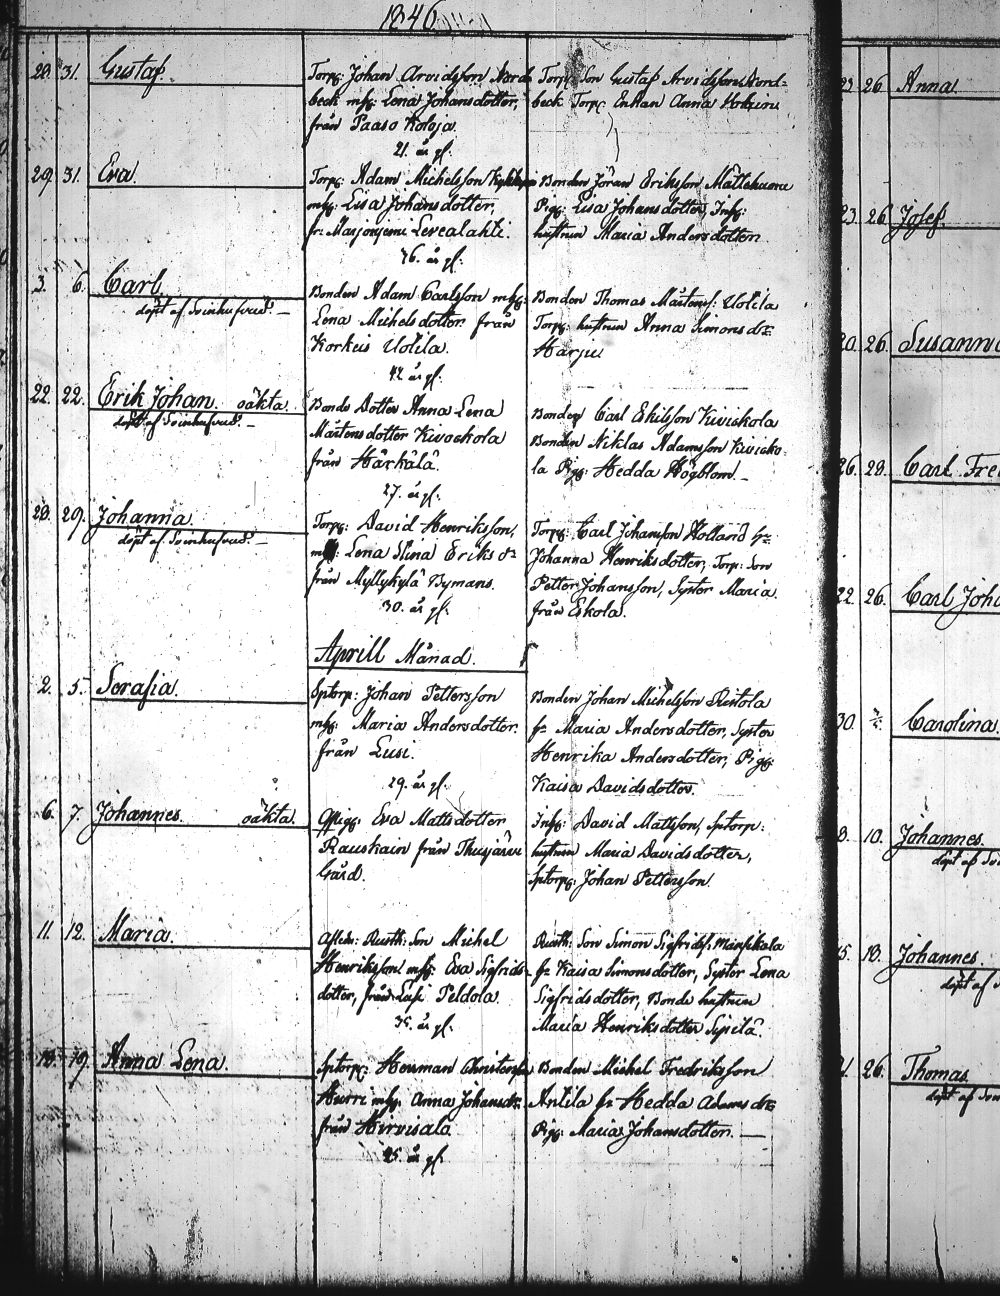 1846
29. 31. Gustaf.
Torp: Johan Arvidsson Nord-
beck m/h: Lena Johansdotter,
från Paaso Koloja.
21. år gl.
Torp: Son Gustaf Arvidsson Nord-
beck Torp: Enkan Anna
29. 31. Eva.
Torp: Adam Michelsson
m/h: Lisa Johansdotter,
fr: Marjoniemi Levealahti.
26. år gl.
Bonden Jöran Eriksson
Pig: Lisa Johansdotter, Inh:
hustrun Maria Andersdotter
3. 6. Carl.
döpt af Svinhufvud. —
Bonden Adam Carlsson m/h:
Lena Michelsdotter från
Korkeis Uotila.
42. år gl.
Bonden Thomas Mårtens: Uotila
Torp: hustrun Anna Simonsdr
Harju
22. 22. Erik Johan. oäkta.
döpt af Svinhufvud. —
Bonde Dotter Anna Lena
Mårtensdotter Kivockola
från Härkälä.
27. år gl.
Bonden Carl Eskilsson Kivickola
Bonden Niklas Adamsson Kivicko-
la Pig: Hedda Högblom. —
28. 29. Johanna.
döpt af Svinhufvud. —
Torp: David Henriksson,
Lena Stina Eriks dr
från Myllykylä Nymans.
30. år gl.
Torp: Carl Johansson Holland hu
Johanna Henriksdotter, Torp: Son
Petter Johansson, Syster Maria
från Eskola.
Aprill Månad.
2. 5. Serafia.
Sptorp: Johan Pettersson
m/h: Maria Andersdotter
från Lusi.
29. år gl.
Bonden Johan Michelsson Ristola
hu Maria Andersdotter, Syster
Henrika Andersdotter, Pig:
Kaisa Davidsdotter.
6. 7. Johannes. oäkta.
Qpig: Eva Mattsdotter
Rauskain från Thusjärvi
Gård.
Inh: David Mattsson, Sptorp:
hustrun Maria Davidsdotter,
Sptorp: Johan Pettersson.
11. 12. Maria.
Rusth: Son Michel
Henriksson m/h: Eva Sigfrids-
dotter, från Lusi Peldola.
35. år gl.
Rusth: Son Simon Sigfrids:
hu Kaisa Simonsdotter, Syster Lena
Sigfridsdotter, Bonde hustrun
Maria Henriksdotter Sipilä.
19. Anna Lena.
Sptorp: Herman Christersson
Hurri m/h: Anna Johansdr
från Hirvisalo.
25. år gl.
Bonden Michel Fredriksson
Antila hu Hedda Adamsdr
Pig: Maria Johansdotter. —
23. 26. Anna.
23. 26. Josef.
20. 26. Susanna
26. 29. Carl Fre
22. 26. Carl Joha
30. Carolina.
8. 10. Johannes.
döpt af Svi
15. 18. Johannes
döpt af S
26. Thomas
döpt af Svin